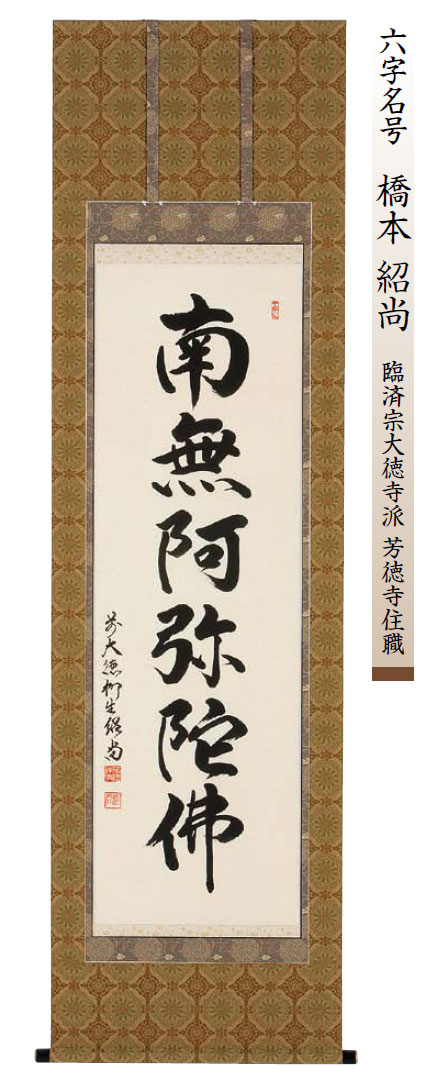 六字名号 橋本 紹尚 臨済宗大徳寺派 芳徳寺住職
南無阿弥陀佛
前大徳柳生紹尚